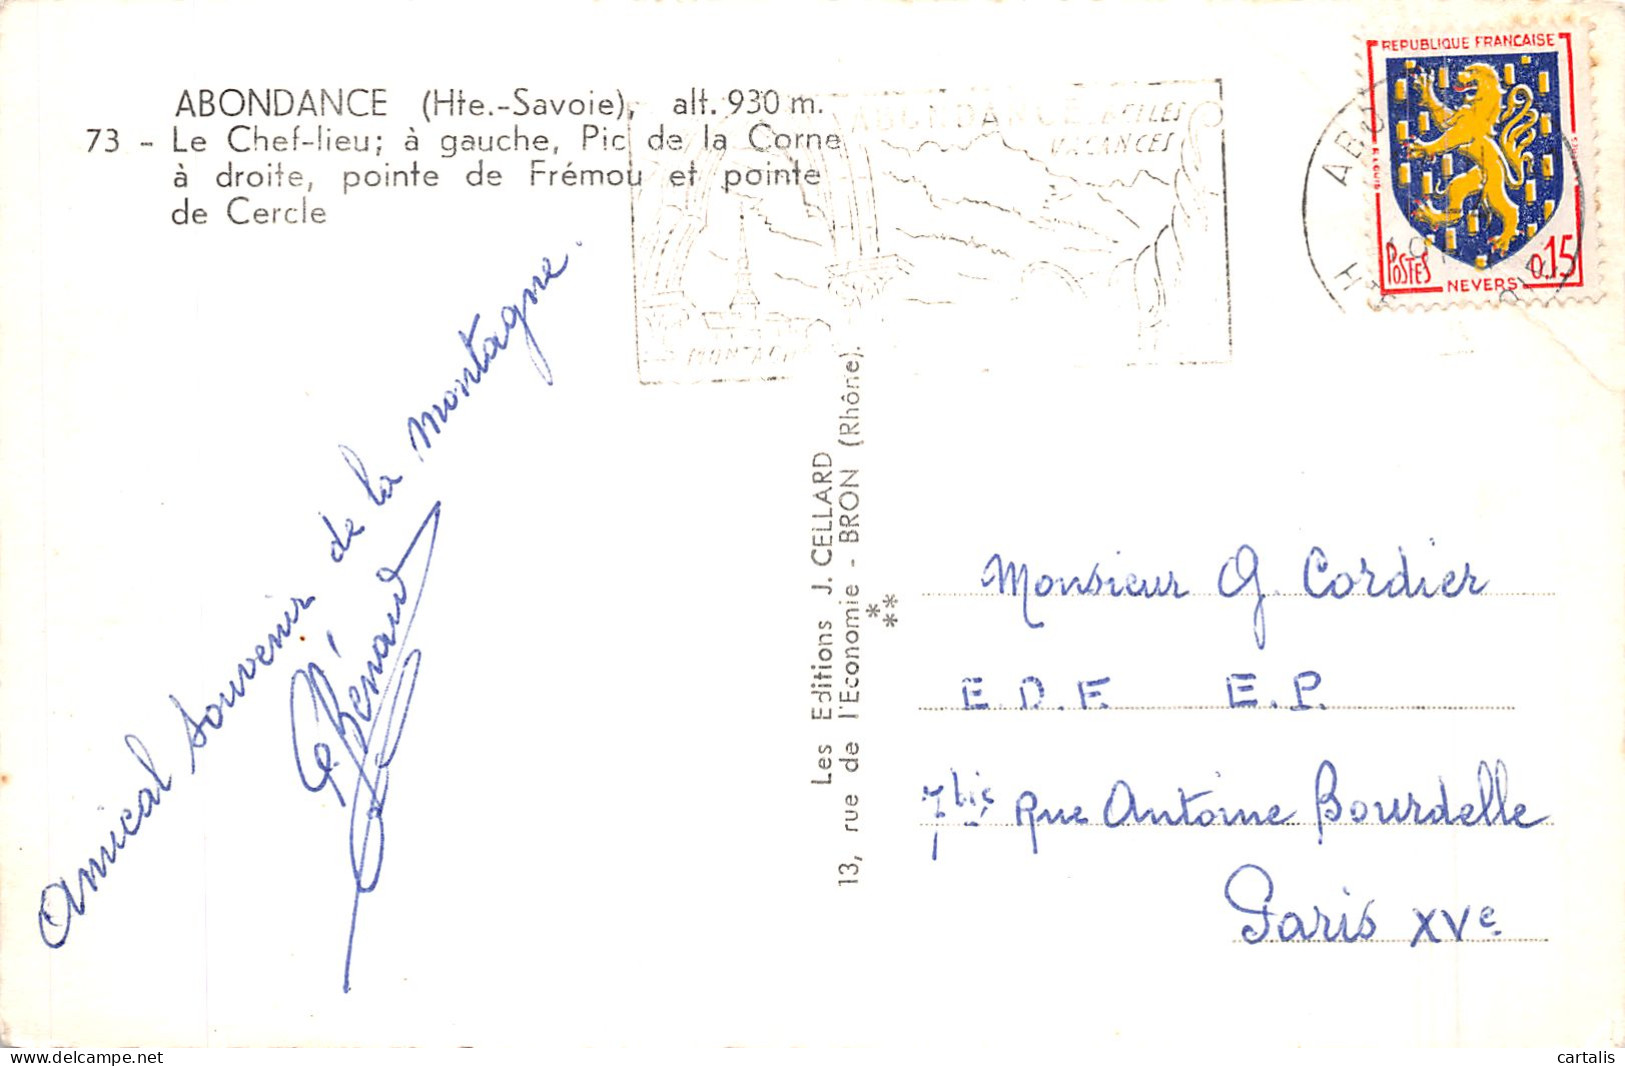 ABONDANCE (Hte.-Savoie), alt. 930 m.
73 - Le Chef-lieu; à gauche, Pic de la Corne
à droite, pointe de Frémou et pointe
de Cercle
ABONDANCE BELLES
VACANCES
REPUBLIQUE FRANCAISE
POSTES
0,15
NEVERS
Amical souvenir de la montagne.
Bénard
Les Editions J. CELLARD
13, rue de l'Economie - BRON (Rhône).
Monsieur G. Cordier
E.D.F. E.P.
7bis Rue Antoine Bourdelle
Paris XVe
delcampe.net
cartalis